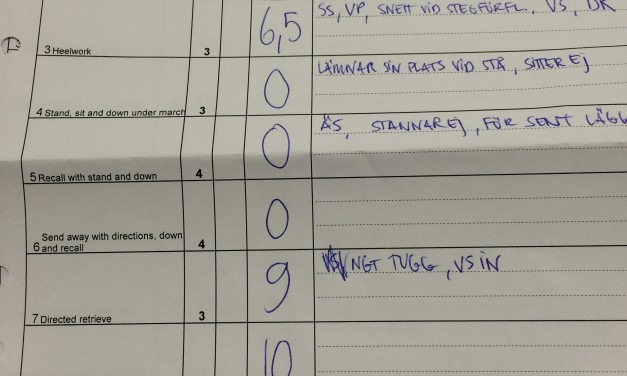 6,5 SS, VP, SNETT VID STEGFÖRFL., VS, DK
3 Heelwork 3
0 LÄMNAR SIN PLATS VID STÅ, SITTER EJ
4 Stand, sit and down under march 3
0 ÄS, STANNAR EJ, FÖR SENT LÄGG
5 Recall with stand and down 4
0
Send away with directions, down
6 and recall 4
9 NGT TUGG, VS IN
7 Directed retrieve 3
10